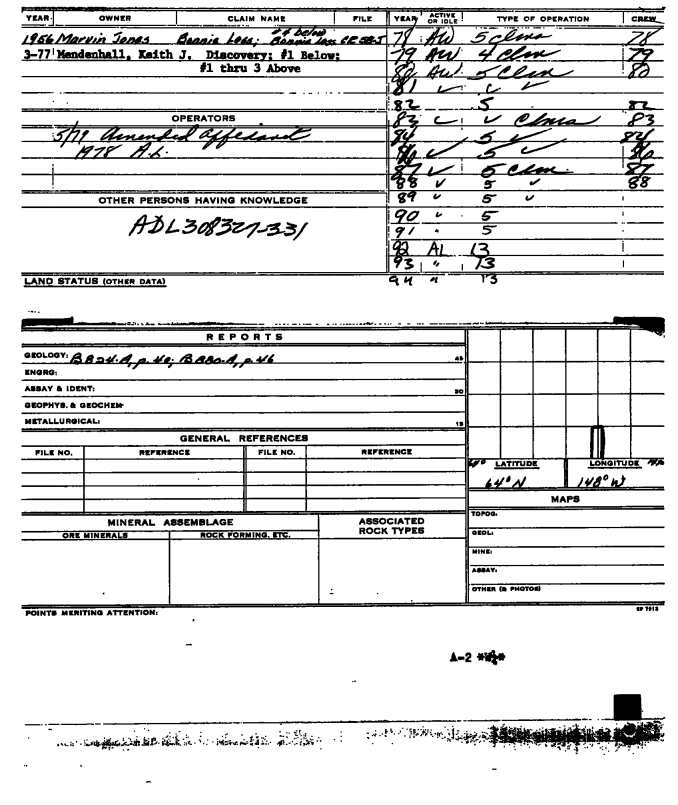 YEAR OWNER CLAIM NAME FILE YEAR ACTIVE OR IDLE TYPE OF OPERATION CREW
1956 Marvin Jones Bonnie Lass; #4 below Bonnie Lass CR 58-5 78 AW 5 clms 78
3-77 Mendenhall, Keith J. Discovery; #1 Below; 79 AW 4 Clm 79
#1 thru 3 Above 80 AW 5 Clm 80
81 ✓ ✓ ✓
82 5 82
OPERATORS 83 ✓ ✓ Clms 83
5/79 Amended affidavit 84 5 ✓ 84
1978 A.L. 86 ✓ 5 ✓ 86
87 ✓ 5 Clm. 87
88 ✓ 5 ✓ 88
OTHER PERSONS HAVING KNOWLEDGE 89 " 5 "
ADL308327-331 90 " 5
91 " 5
92 AL 13
93 " 13
LAND STATUS (OTHER DATA) 94 " 13
REPORTS
GEOLOGY: B 824-A, p. 40; B 880-A, p. 46 45
ENGRG:
ASSAY & IDENT: 30
GEOPHYS. & GEOCHEM
METALLURGICAL: 15
GENERAL REFERENCES
FILE NO. REFERENCE FILE NO. REFERENCE
LATITUDE LONGITUDE
64° N 148° W
MAPS
MINERAL ASSEMBLAGE ASSOCIATED ROCK TYPES TOPOG.
ORE MINERALS ROCK FORMING, ETC. GEOL:
MINE:
ASSAY:
OTHER (& PHOTOS)
POINTS MERITING ATTENTION: SP 7613
A-2